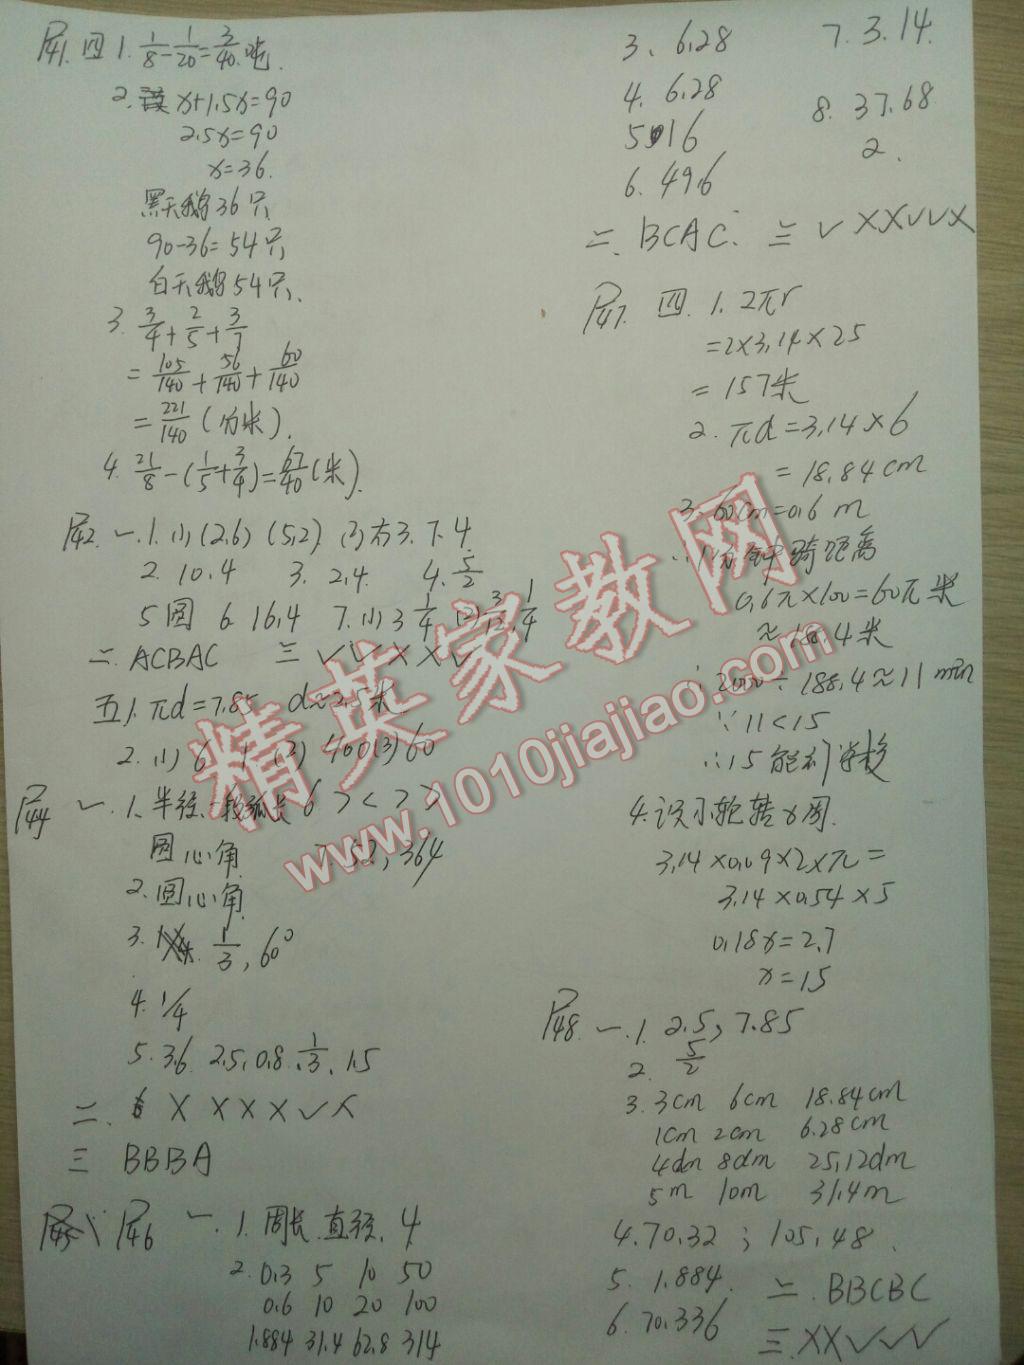 P41. 四 1. 1/8-1/20=3/40 吨.
2. x+1.5x=90
2.5x=90
x=36.
黑天鹅36只
90-36=54只
白天鹅54只.
3. 3/4+2/5+3/7
=105/140+56/140+60/140
=221/140(分米).
4. 21/8-(1/5+3/4)=67/40(米).
P42. 一.1. (1) (2,6) (5,2) (2)右3.下4.
2. 10.4 3. 2,4. 4. 5/2
5 圆 6. 16,4 7. (1) 3 1/4 (2) 3/12, 1/4
二. ACBAC 三 ✓✓××✓
五1. πd=7.85 d≈2.5米
2. (1) 6 1 (2) 400 (3) 60
P44 一. 1. 半径、一段弧长 6 > < > >
圆心角 7. 52, 364
2. 圆心角
3. 1/3, 60°
4. 1/4
5. 3.6 2.5, 0.8, 1/3, 1.5
二. × × × × ✓ ×
三 BBBA
P46 一. 1. 周长.直径. 4
2. 0.3 5 10 50
0.6 10 20 100
1.884 31.4 62.8 314
3、6.28 7. 3.14.
4. 6.28 8. 37.68
5. 16 2.
6. 49.6
二. BCAC. 三 ✓××✓✓×
P47. 四. 1. 2πr
=2×3.14×25
=157米
2. πd=3.14×6
=18.84cm
3. 60cm=0.6 m
∴1分钟骑距离
0.6π×100=60π米
≈188.4米
∴2000÷188.4≈11 min
∵11<15
∴15能到学校
4. 设小轮转x周.
3.14×0.09×2×π=
3.14×0.54×5
0.18x=2.7
x=15
P48. 一.1. 2.5, 7.85
2. 5/2
3. 3cm 6cm 18.84cm
1cm 2cm 6.28cm
4dm 8dm 25.12dm
5m 10m 31.4m
4. 70.32; 105.48.
5. 1.884. 二. BBCBC
6. 70.336 三.××✓✓✓
精英家教网
www.1010jiajiao.com